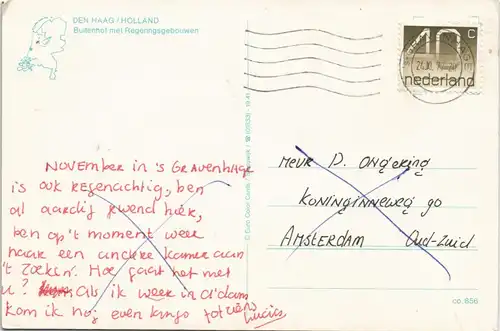 DEN HAAG / HOLLAND
Buitenhof met Regeringsgebouwen
40 c
nederland
NOVEMBER in 's GRAVENHAGE
is ook REgenachtig, ben
al aardig gewend hier,
ben op 't moment weer
naar een andere kamer aan
't zoeken. Hoe gaat het met
u? Als ik weer in A'dam
kom ik nog even langs tot ziens
Mevr D. Ongering
KONINginneweg 90
AMSTERDAM Oud-Zuid
co. 656